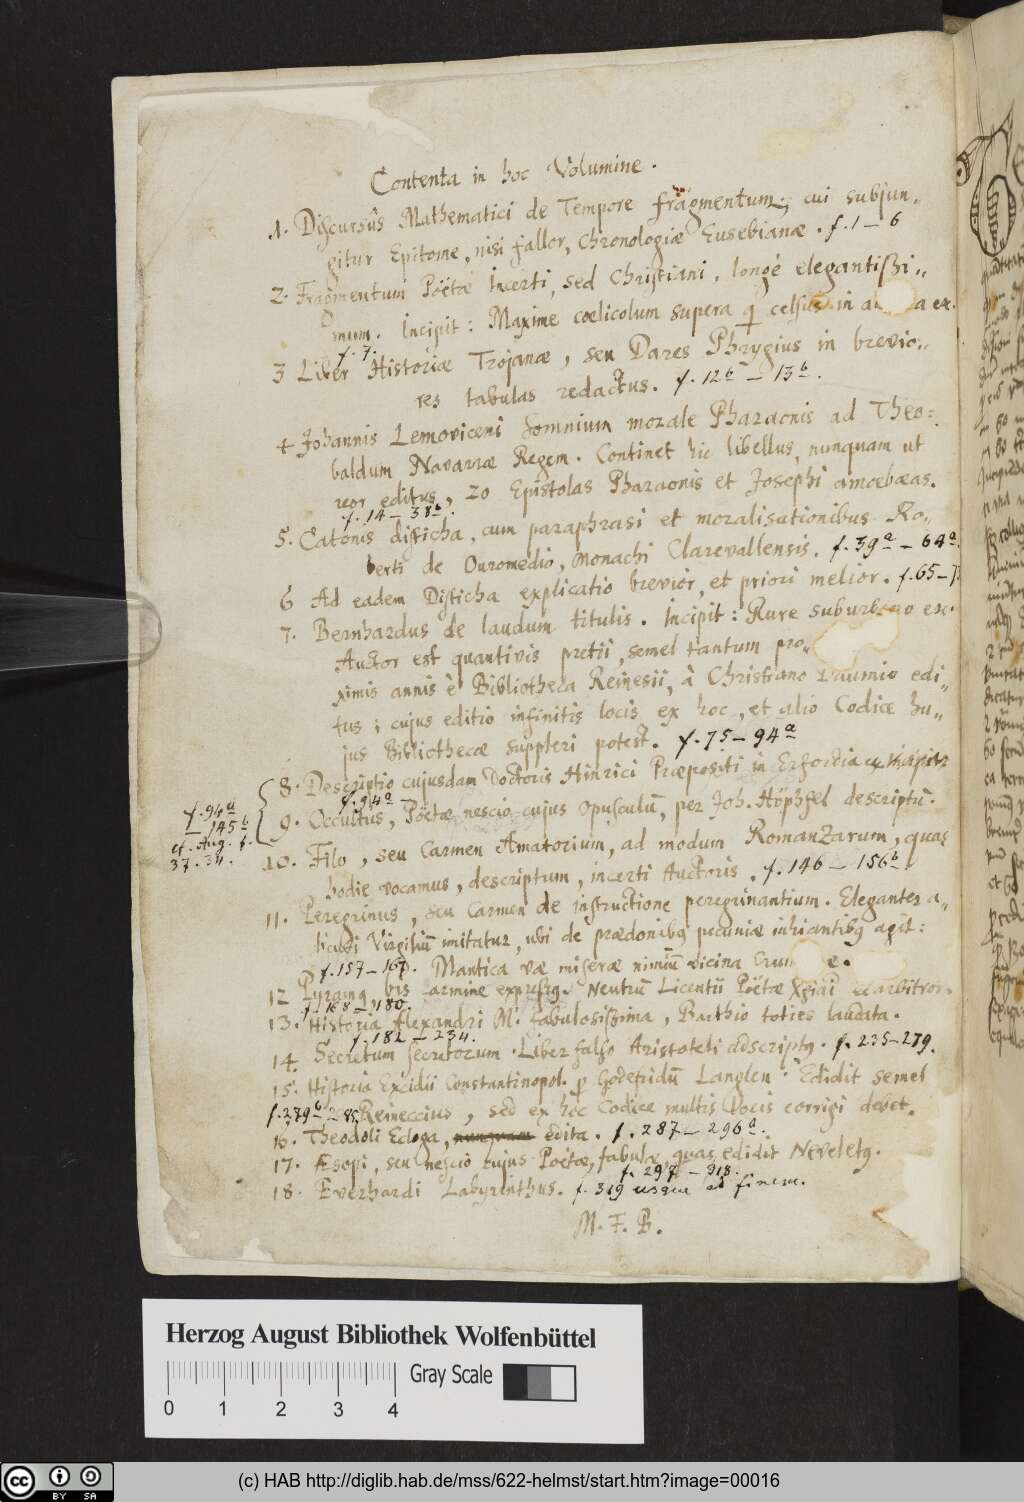 Contenta in hoc Volumine.
1. Discursûs Mathematici de Tempore fragmentum, cui subjun„
gitur Epitome, nisi fallor, Chronologiæ Eusebianæ. f. 1 – 6
2. Fragmentum Poëtæ Incerti, sed Christiani, longè elegantissi„
mum. Incipit: Maxime cœlicolum supera q celsus in a a ex.
f. 7.
3 Liber Historiæ Trojanæ, seu Dares Phrygius in brevio„
res tabulas redactus. f. 12b – 13b.
4 Johannis Lemovicensi Somnium morale Pharaonis ad Theo:
baldum Navarræ Regem. Continet hic libellus, nunquam ut
reor editus, 20 Epistolas Pharaonis et Josephi amœbæas.
f. 14 – 38b.
5. Catonis disticha, cum paraphrasi et moralisationibus Ro„
berti de Ouromedio, Monachi Clarevallensis. f. 39a – 64a.
6 Ad eadem Disticha explicatio brevior, et priori melior. f. 65 – 7
7. Bernhardus de laudum titulis. Incipit: Rure suburbano ex.
Auctor est quantivis pretii, semel tantum pro„
ximis annis è Bibliotheca Reinesii, à Christiano Daumio edi„
tus; cujus editio infinitis locis ex hoc, et alio Codice hu„
jus Bibliothecæ suppleri potest. f. 75 – 94a
8. Descriptio cujusdam Doctoris Hinrici Præpositi in Erfordia
f. 94a
f. 94a
– 145b
cf. Aug. f.
37. 34.
9. Occultus, Poëtæ nescio cujus opusculũ, per Joh. Höpffel descriptũ.
10. Filo, seu Carmen Amatorium, ad modum Romanzarum, quas
hodie vocamus, descriptum, incerti Auctoris. f. 146 – 156b
11. Peregrinus, seu Carmen de instructione peregrinantium. Eleganter a„
licubi Virgiliũ imitatur, ubi de prædonibq pecuniæ inhiantibq agit:
f. 157 – 167. Mantica væ miseræ nimiũ vicina e.
12 Pyramq bis Carmine expressq. Neutrũ Licentii Poëtæ Xṕiani arbitror.
f. 168 – 180.
13. Historia Alexandri M. fabulosissima, Barthio toties laudata.
f. 182 – 234.
14. Secretum Secretorum. Liber falso Aristoteli adscriptq. f. 235 – 279.
15. Historia Excidii Constantinopol. p Godefridũ Langlen. Edidit semel
f. 279b – 285. Reineccius, sed ex hoc Codice multis locis corrigi debet.
16. Theodoli Ecloga, nunquam edita. f. 287 – 296a.
17. Æsopi, seu nescio cujus Poëtæ, fabulæ, quas edidit Neveletq.
f. 297 – 318.
18. Everhardi Labyrinthus. f. 319 usque ad finem.
M. F. B.
Herzog August Bibliothek Wolfenbüttel
Gray Scale
0 1 2 3 4
cc BY SA
(c) HAB http://diglib.hab.de/mss/622-helmst/start.htm?image=00016